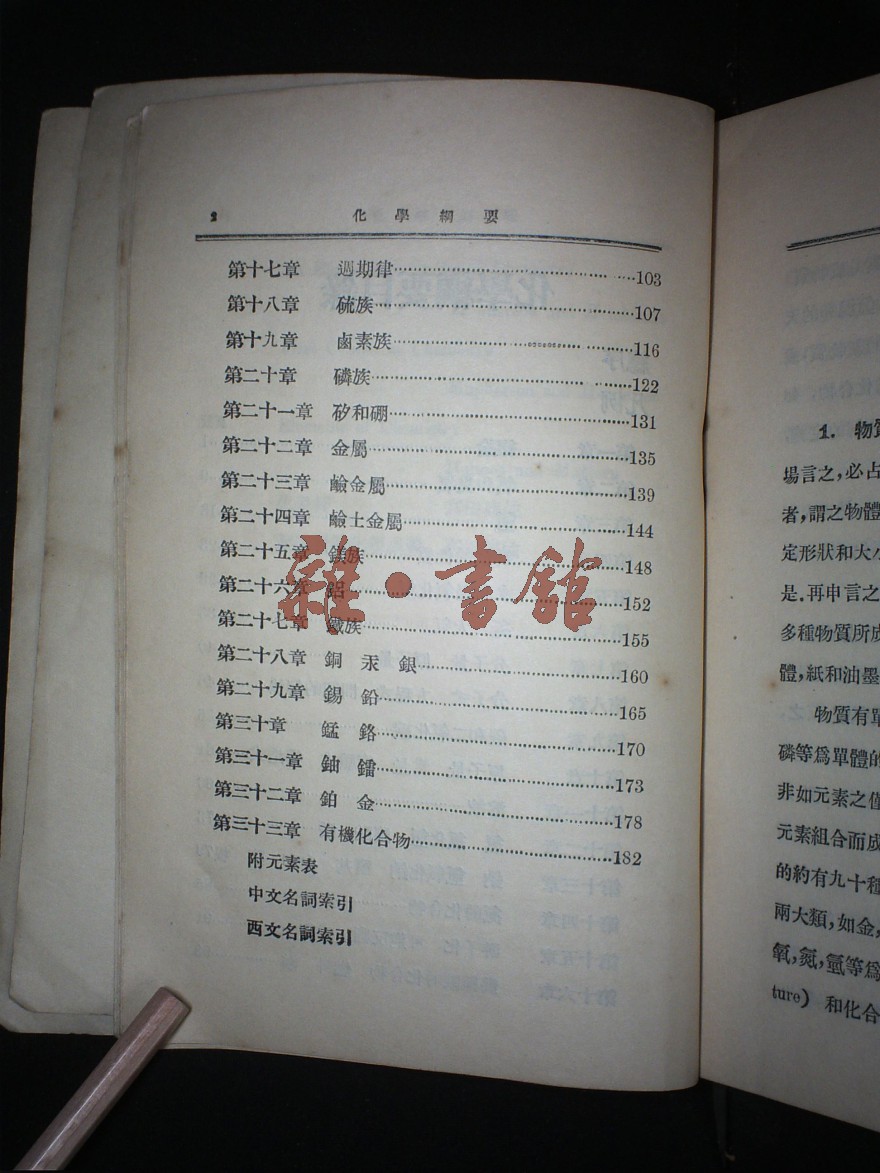 2 化學綱要
第十七章 週期律……103
第十八章 硫族……107
第十九章 鹵素族……116
第二十章 磷族……122
第二十一章 矽和硼……131
第二十二章 金屬……135
第二十三章 鹼金屬……139
第二十四章 鹼土金屬……144
第二十五章 鎂族……148
第二十六章 鋁……152
第二十七章 鐵族……155
第二十八章 銅 汞 銀……160
第二十九章 錫 鉛……165
第三十章 錳 鉻……170
第三十一章 鈾 鐳……173
第三十二章 鉑 金……178
第三十三章 有機化合物……182
附元素表
中文名詞索引
西文名詞索引
雜·書館
1. 物質
場言之,必占
者,謂之物體
定形狀和大小
是.再申言之
多種物質所成
體,紙和油墨
物質有單
磷等爲單體的
非如元素之僅
元素組合而成
的約有九十種
兩大類,如金,
氧,氮,氫等爲
ture) 和化合